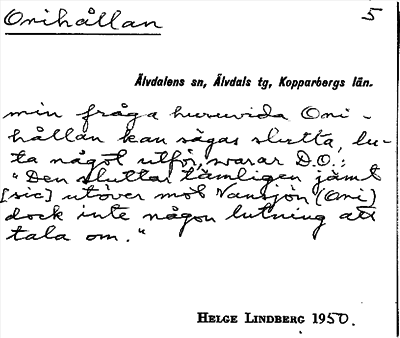 Orrihållan 5
Älvdalens sn, Älvdals tg, Kopparbergs län.
min fråga huruvida Orri-
hållan kan sägas slutta, lu-
ta något utför, svarar D.O.:
"Den sluttar tämligen jämt
[sic] utöver mot Vansjön (Orri)
dock inte någon lutning att
tala om."
HELGE LINDBERG 1950.